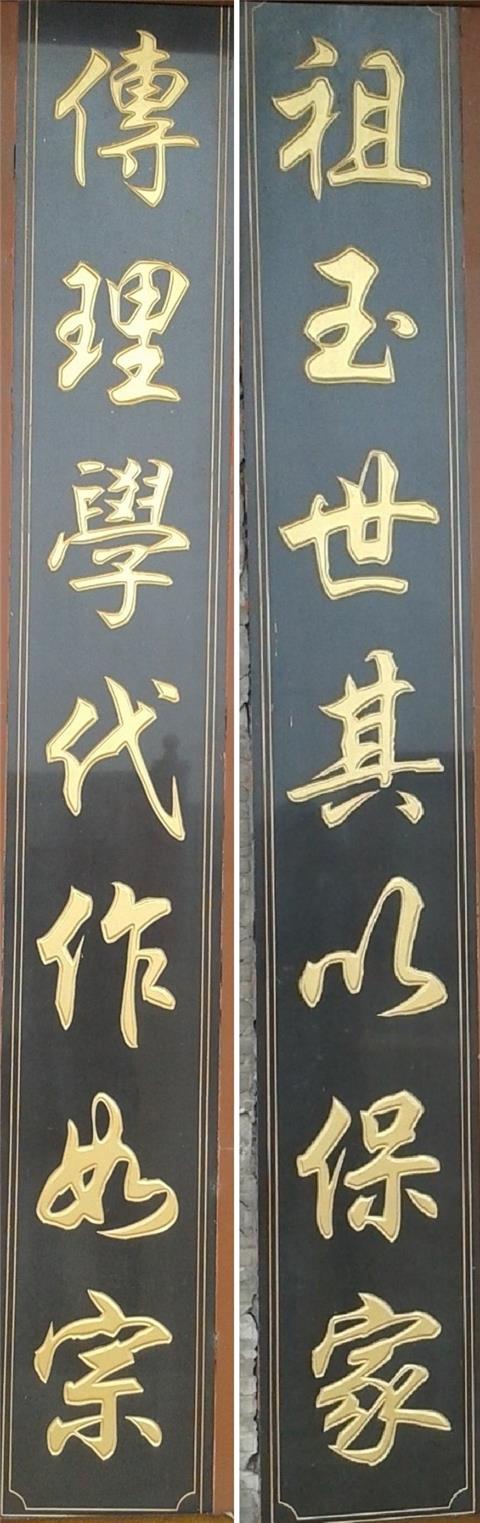 祖玉世其以保家
傳理學代作如宗